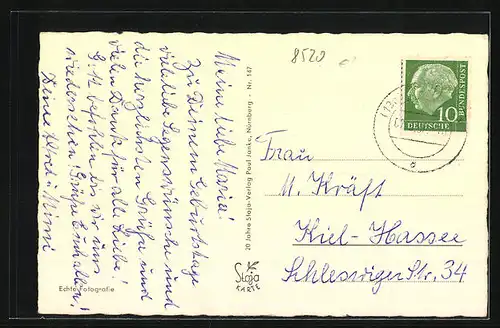 8520
Meine liebe Maria!
Zu Deinem Geburtstage
viele liebe Segenswünsche und
die herzlichsten Grüße und
vielen Dank für alle Liebe!
wir uns
wiedersehen! Grüße
Deine Alfred u. Mimi
20 Jahre Staja-Verlag Paul Janke, Nürnberg - Nr. 147
Echte Fotografie
Staja
KARTE
DEUTSCHE
BUNDESPOST
10
Frau
M. Kräft
Kiel-Hassee
Schleswiger Str. 34